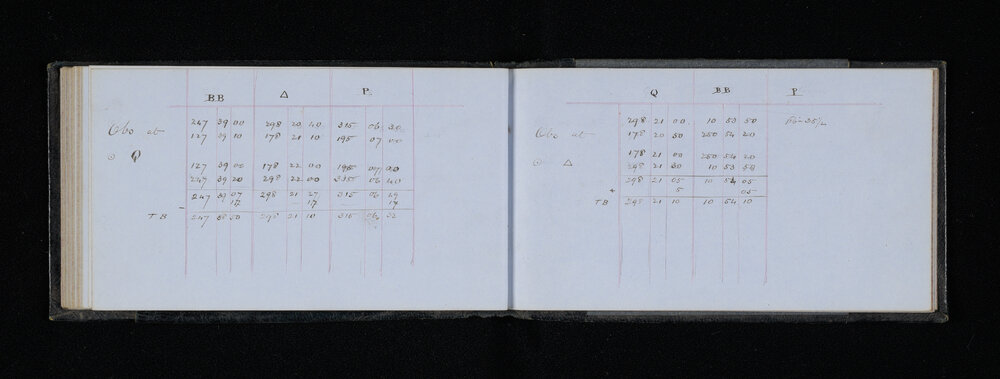 BB Δ P
Obs at 247 39 00 298 20 40 315 06 30
127 39 10 178 21 10 195 07 00
⊙ Q 127 39 00 178 22 00 195 07 00
247 39 20 298 22 00 315 06 40
247 39 07 298 21 27 315 06 49
- 17 17 17
TB 247 38 50 298 21 10 315 06 32
Q BB P
Obs at 298 21 00 10 53 50
178 20 50 250 54 20
⊙ Δ 178 21 00 250 54 20
298 21 30 10 53 50
298 21 05 10 54 05
+ 5 05
TB 298 21 10 10 54 10